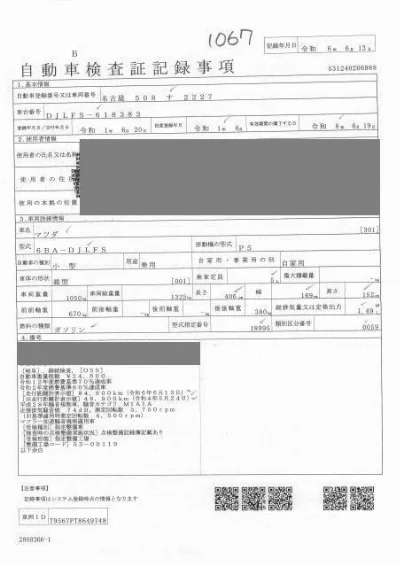 1067
記録年月日 令和 6年 6月 13日
B
自動車検査証記録事項
531240206988
1.基本情報
自動車登録番号又は車両番号 名古屋 508 す 2227
車台番号 DJLFS-618383
登録年月日/交付年月日 令和 1年 6月 20日 初度登録年月 令和 1年 6月 有効期間の満了する日 令和 8年 6月 19日
2.使用者情報
使用者の氏名又は名称
使用者の住所
使用の本拠の位置
3.車両詳細情報
車名 マツダ [301]
型式 6BA-DJLFS 原動機の型式 P5
自動車の種別 小型 用途 乗用 自家用・事業用の別 自家用
車体の形状 箱型 [001] 乗車定員 5人 最大積載量
車両重量 1050kg 車両総重量 1325kg 長さ 406cm 幅 169cm 高さ 152cm
前前軸重 670kg 前後軸重 後前軸重 後後軸重 380kg 総排気量又は定格出力 1.49
燃料の種類 ガソリン 型式指定番号 18995 類別区分番号 0059
4.備考
継続検査, [OSS]
自動車重量税額 ¥24,600
令和12年度燃費基準70%達成車
[走行距離計表示値] 84,800km (令和6年6月13日)
平成28年騒音規制車, 騒音カテゴリ M1A1A
近接排気騒音値 74dB, 測定回転数 3,750rpm
マフラー加速騒音規制適用車
[受検種別] 指定整備車
[検査時の点検整備実施状況] 点検整備記録簿記載あり
[受検形態] 指定整備工場
[整備工場コード] 53-00119
以下余白
【注意事項】
記録事項はシステム登録時点の情報となります
車両ID T9567PT8649748
2808306-1